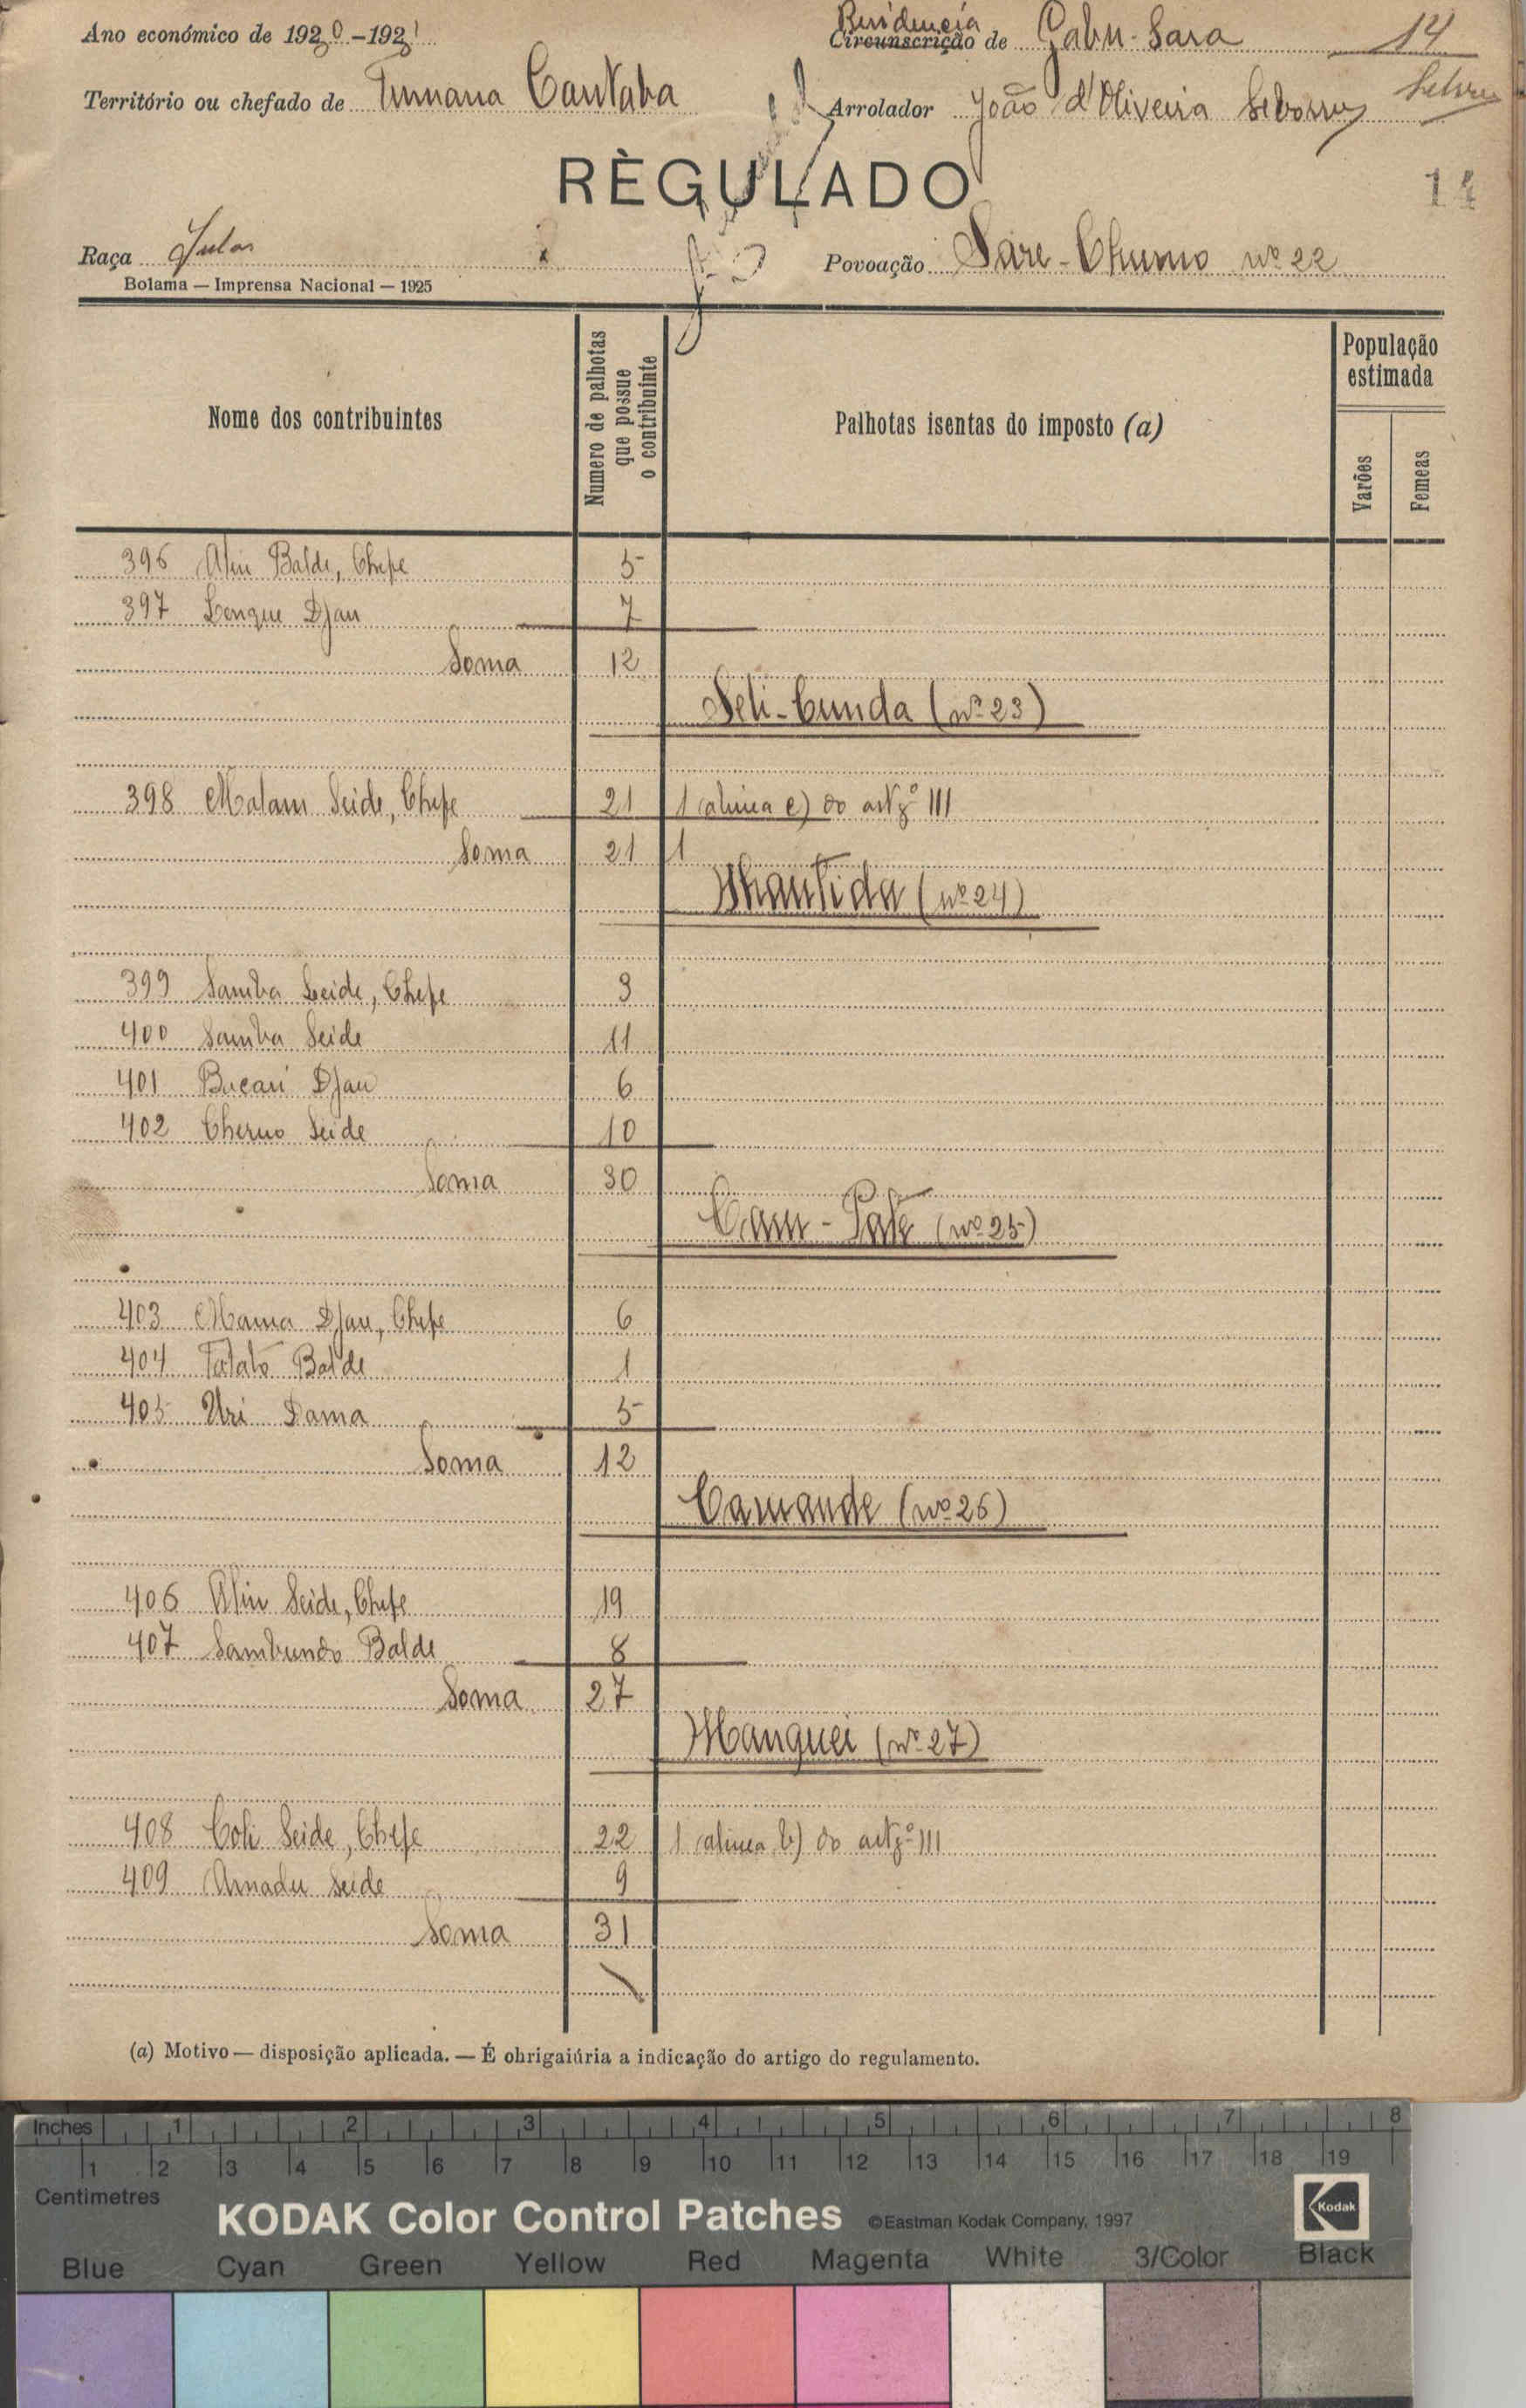 Ano económico de 1920-1921
Residencia
Circunscrição de Gabu-Sara 14
Território ou chefado de Tumana Cantaba
Arrolador João d'Oliveira
RÈGULADO
14
Raça Fulas
Povoação Sare-Chumo nº 22
Bolama — Imprensa Nacional — 1925
Nome dos contribuintes
Numero de palhotas
que possue
o contribuinte
Palhotas isentas do imposto (a)
População
estimada
Varões
Femeas
396 Aliu Balde, Chefe 5
397 Lenque Djau 7
Soma 12
Seli-Cunda (nº 23)
398 Malam Seide, Chefe 21 1 (alinea e) do artgº 111
Soma 21 1
Nhantida (nº 24)
399 Samba Seide, Chefe 3
400 Samba Seide 11
401 Bucari Djau 6
402 Cherno Seide 10
Soma 30
Cam-Pate (nº 25)
403 Mama Djau, Chefe 6
404 Tatato Balde 1
405 Uri Dama 5
Soma 12
Camande (nº 26)
406 Aliu Seide, Chefe 19
407 Sambundo Balde 8
Soma 27
Manquei (nº 27)
408 Coli Seide, Chefe 22 1 (alinea b) do artgº 111
409 Amadu Seide 9
Soma 31
(a) Motivo — disposição aplicada. — É obrigaiúria a indicação do artigo do regulamento.
Inches 1 2 3 4 5 6 7 8
1 2 3 4 5 6 7 8 9 10 11 12 13 14 15 16 17 18 19
Centimetres
KODAK Color Control Patches ©Eastman Kodak Company, 1997 Kodak
Blue Cyan Green Yellow Red Magenta White 3/Color Black